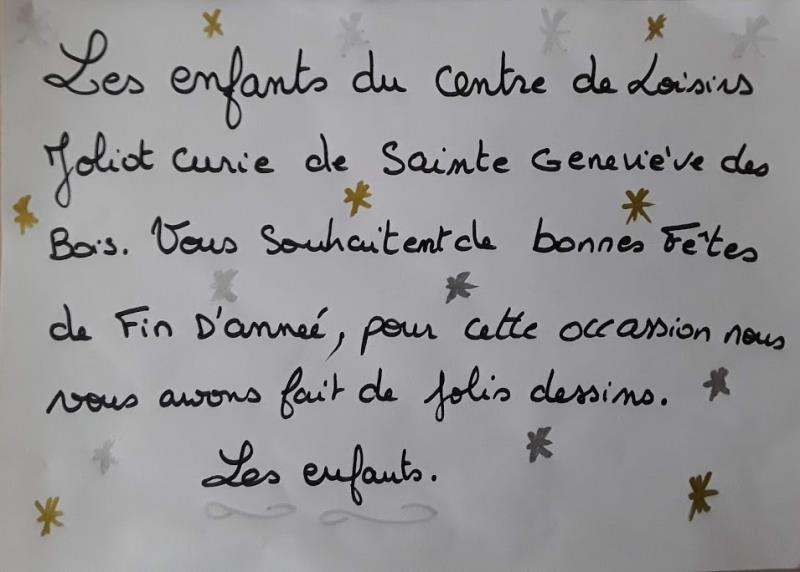 Les enfants du centre de Loisirs
Joliot Curie de Sainte Geneviève des
Bois. Vous Souhaitent de bonnes Fêtes
de Fin D'anneé, pour cette occassion nous
vous avons fait de jolis dessins.
Les enfants.